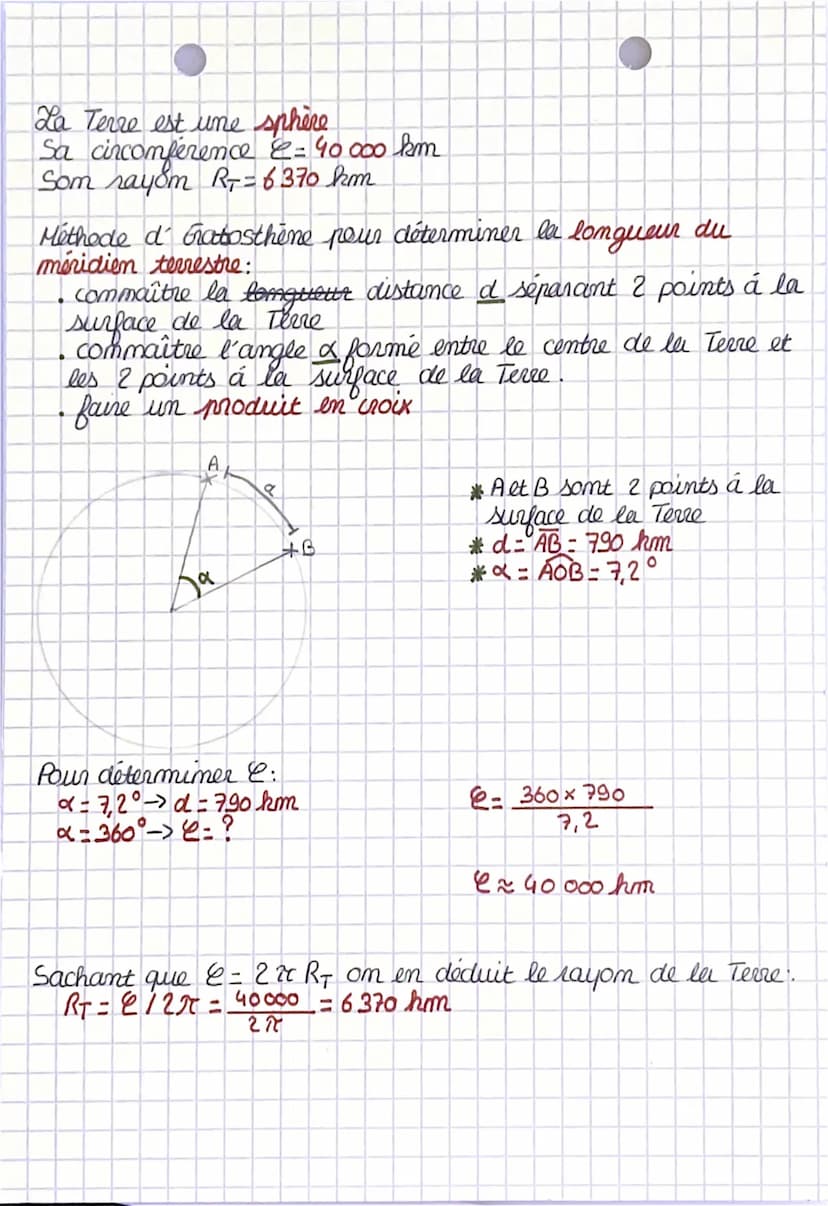 La Terre est une sphère
Sa circonférence C = 40 000 km
Son rayon R_T = 6 370 km
Méthode d' Eratosthène pour déterminer la longueur du
méridien terrestre :
. connaître la longueur distance d séparant 2 points à la
surface de la Terre
. connaître l'angle α formé entre le centre de la Terre et
les 2 points à la surface de la Terre.
. faire un produit en croix
A
B
α
* A et B sont 2 points à la
surface de la Terre
* d = AB = 790 km
* α = AOB = 7,2°
Pour déterminer C :
α = 7,2° -> d = 790 km
α = 360° -> C = ?
C = 360 × 790 / 7,2
C ≈ 40 000 km
Sachant que C = 2 π R_T on en déduit le rayon de la Terre :
R_T = C / 2π = 40 000 / 2π = 6 370 km